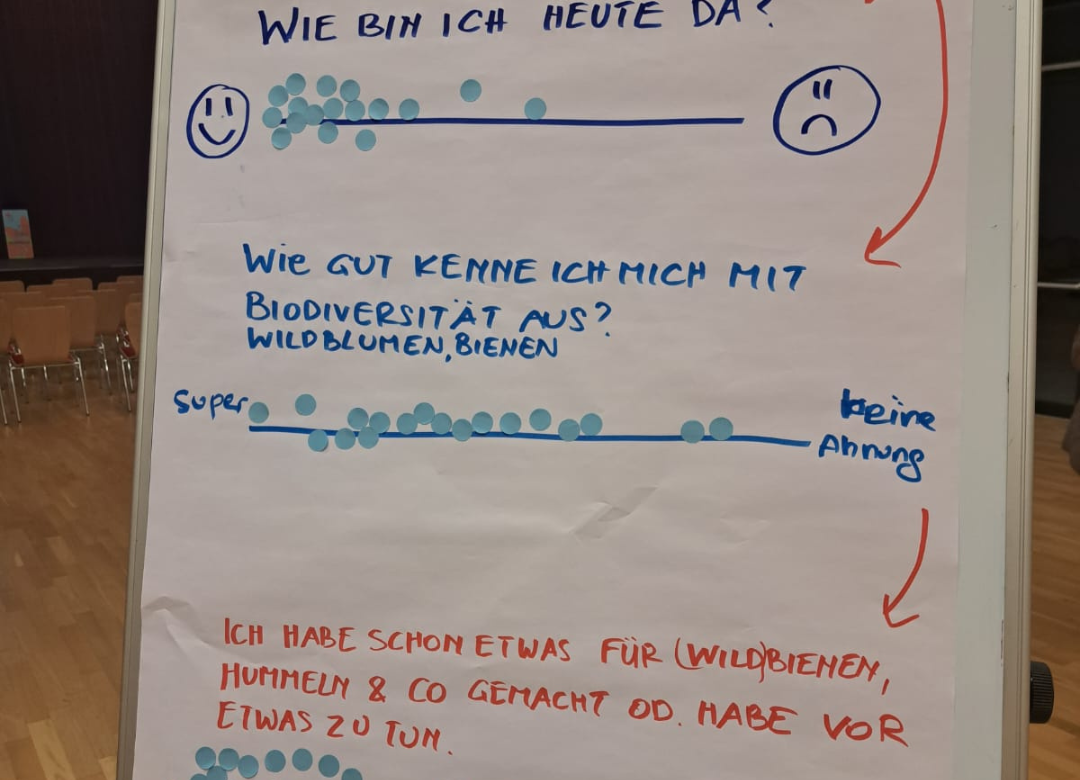 WIE BIN ICH HEUTE DA?
WIE GUT KENNE ICH MICH MIT
BIODIVERSITÄT AUS?
WILDBLUMEN, BIENEN
super
keine
Ahnung
ICH HABE SCHON ETWAS FÜR (WILD)BIENEN,
HUMMELN & CO GEMACHT OD. HABE VOR
ETWAS ZU TUN.